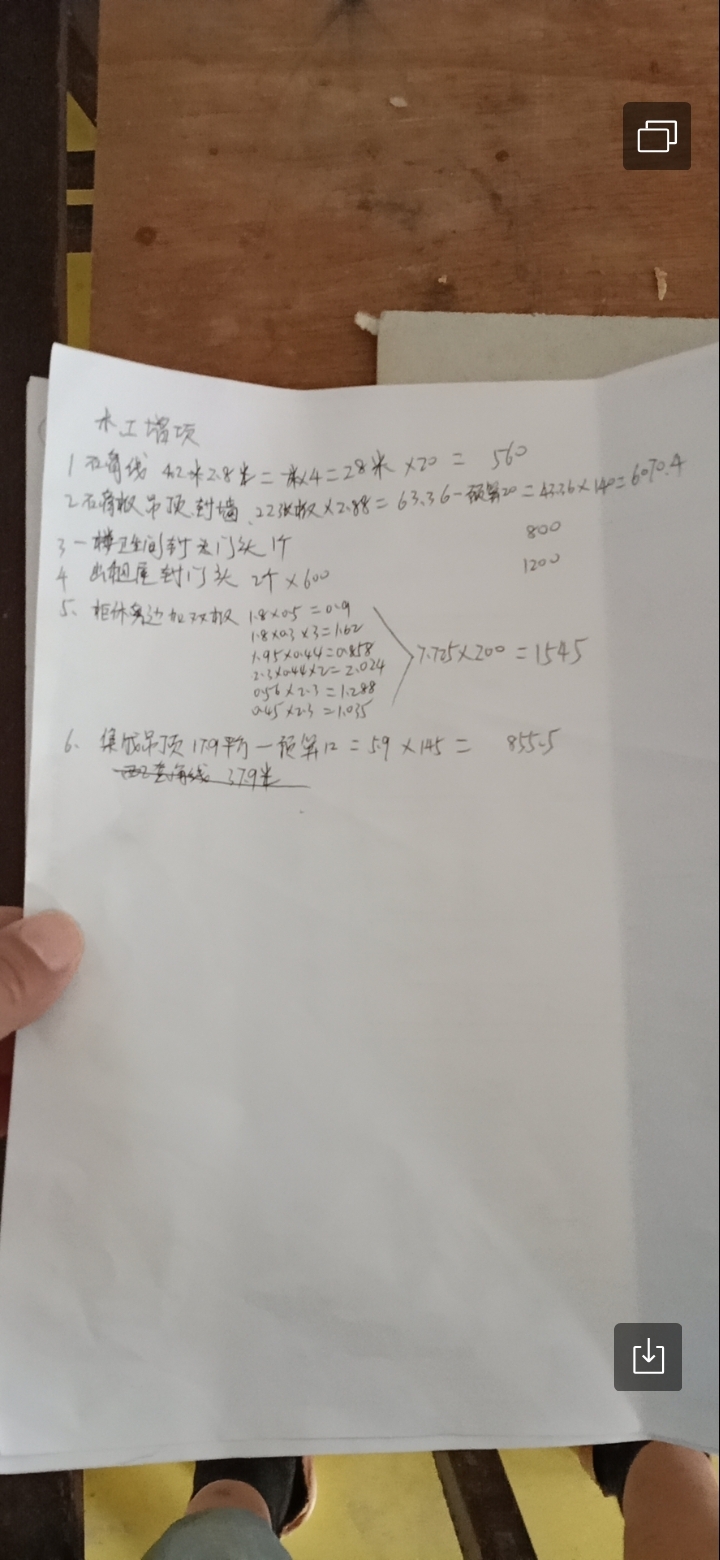 木工增项
1 石膏线 42米2.8米=米x4=28米 ×20= 560
2.石膏板吊顶.封墙.22张板×2.88=63.36-预算20=43.36×140=6070.4
3 一楼卫生间封 门头1个 800
4 出租屋封门头 2个×600 1200
5、柜体 边加双板 1.8×0.5=0.9
1.8×0.3×3=1.62
1.95×0.44=0.858
2.3×0.44×2=2.024
0.56×2.3=1.288
0.45×2.3=1.035
7.725×200=1545
6、集成吊顶 17.9平方-预算12=5.9×145= 855.5
角线 37.9米